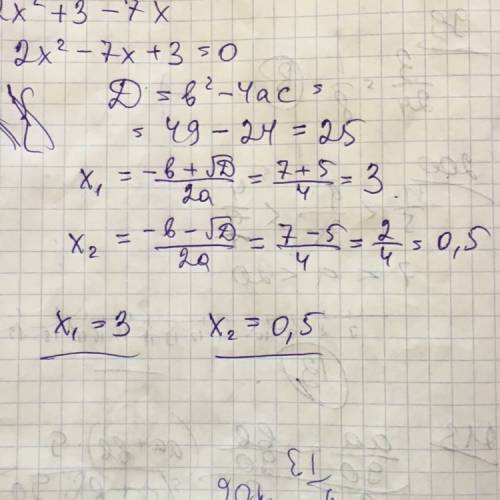 2x² + 3 - 7x
2x² - 7x + 3 = 0
D = b² - 4ac =
= 49 - 24 = 25
x₁ = (-b + √D)/2a = (7 + 5)/4 = 3
x₂ = (-b - √D)/2a = (7 - 5)/4 = 2/4 = 0,5
x₁ = 3 x₂ = 0,5